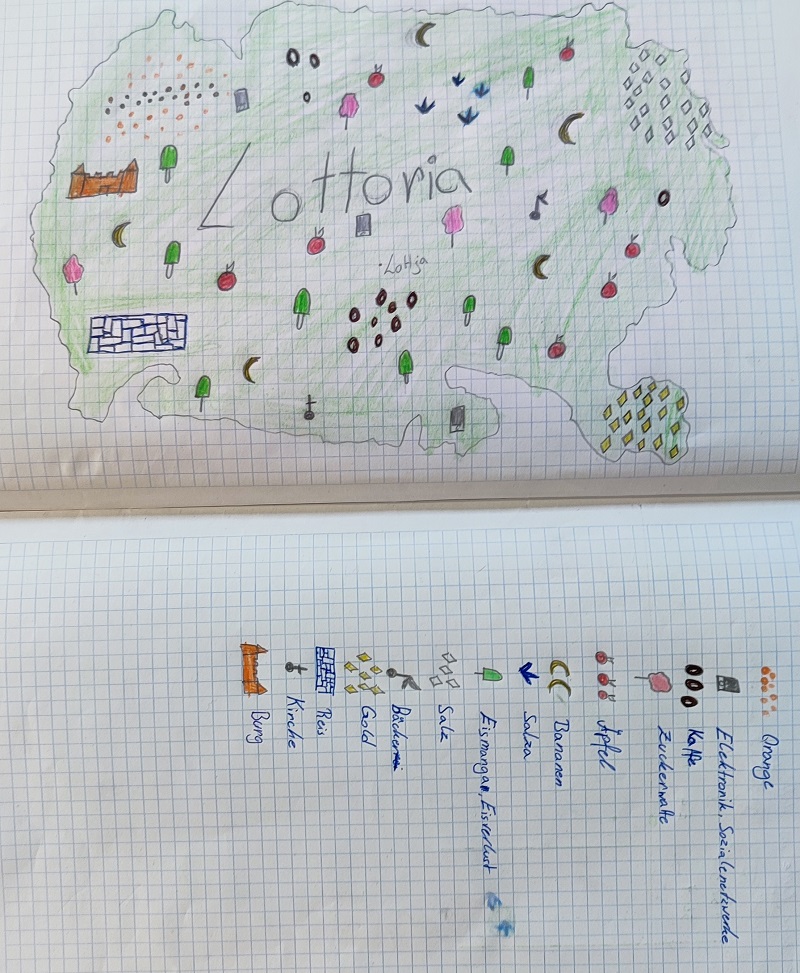 Lottoria
Lottja
Orange
Elektronik, Sozialenetzwerke
Kaffe
Zuckerwatte
Äpfel
Bananen
Salza
Eismangan, Eisverlust
Salz
Bäckerei
Gold
Reis
Kirche
Burg